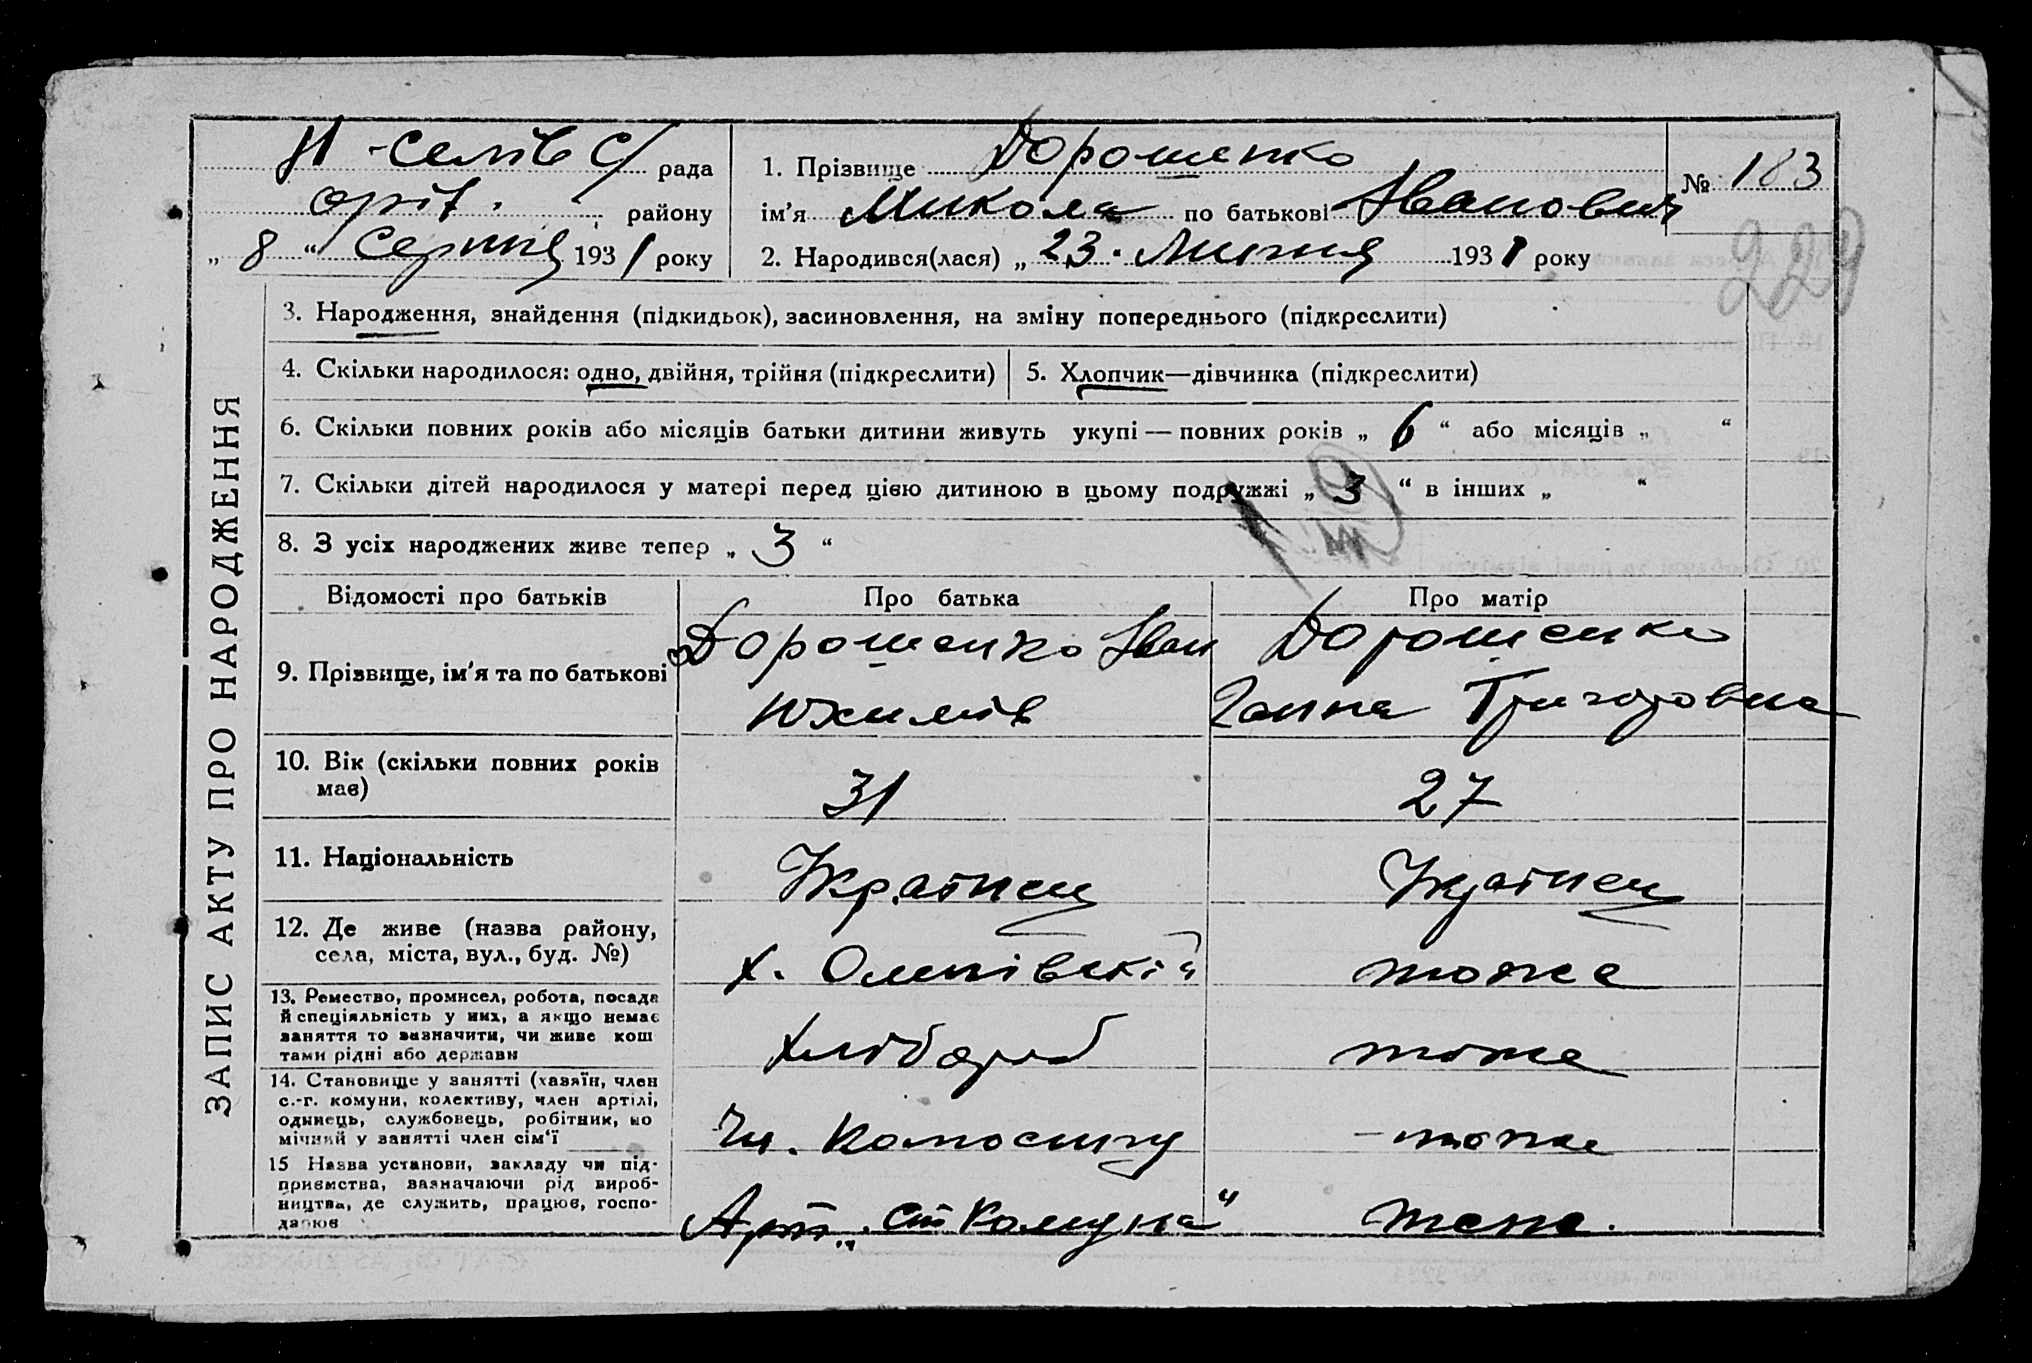 Н-Селів С/ рада
оріт. району
„ 8 “ Серпня 1931 року
1. Прізвище Дорошенко
ім’я Микола по батькові Іванович
2. Народився(лася) „ 23. Липня 1931 року
№ 183
229
ЗАПИС АКТУ ПРО НАРОДЖЕННЯ
3. Народження, знайдення (підкидьок), засиновлення, на зміну попереднього (підкреслити)
4. Скільки народилося: одно, двійня, трійня (підкреслити)
5. Хлопчик—дівчинка (підкреслити)
6. Скільки повних років або місяців батьки дитини живуть укупі — повних років „ 6 “ або місяців „ “
7. Скільки дітей народилося у матері перед цією дитиною в цьому подружжі „ 3 “ в інших „ “
8. З усіх народжених живе тепер „ 3 “
Відомості про батьків
Про батька
Про матір
9. Прізвище, ім’я та по батькові
Дорошенко Іван
Юхимів
Дорошенко
Ганна Григоровна
10. Вік (скільки повних років
має)
31
27
11. Національність
Українец
Українец
12. Де живе (назва району,
села, міста, вул., буд. №)
х.
тоже
13. Ремество, промисел, робота, посада
й спеціяльність у них, а якщо немає
заняття то зазначити, чи живе кош
тами рідні або держави
хлібороб
тоже
14. Становище у занятті (хазяїн, член
с.-г. комуни, колективу, член артілі,
одинець, службовець, робітник, по
мічний у занятті член сім’ї
Чл. Колосищу
— тоже
15 Назва установи, закладу чи під-
приємства, зазначаючи рід вироб-
ництва, де служить, працює, госпо-
дарює
Арт. „ Ст Комуна“
тоже.